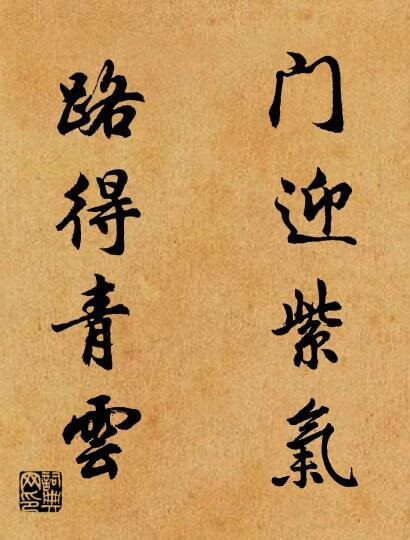 门迎紫氣
路得青雲
詞典网印